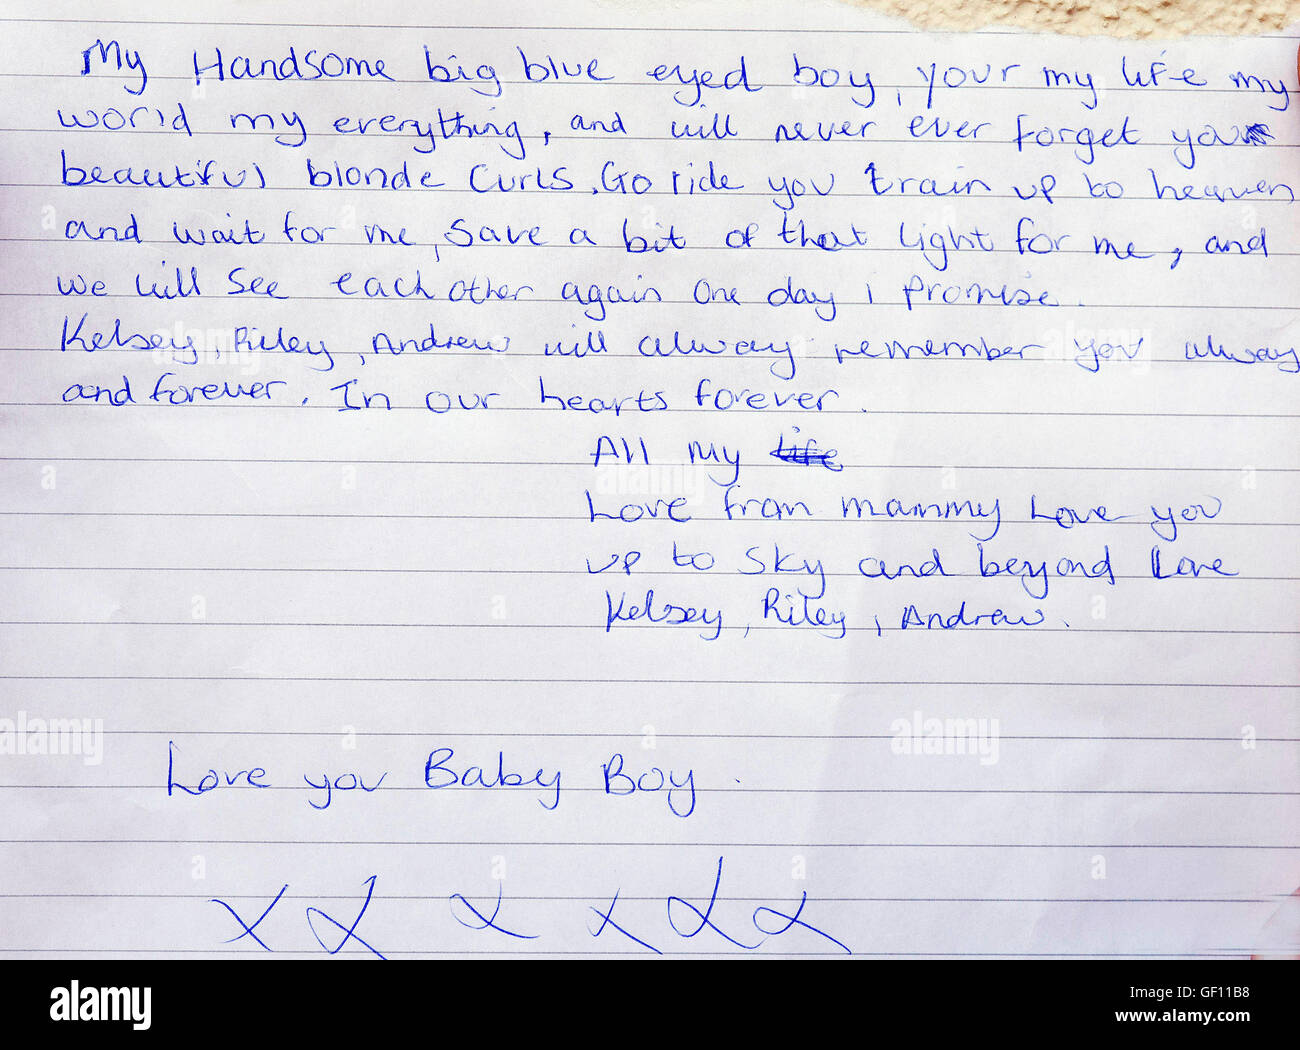 My Handsome big blue eyed boy, your my life my
world my everything, and will never ever forget you
beautiful blonde curls. Go ride you train up to heaven
and wait for me, save a bit of that light for me, and
we will see each other again one day i promise.
Kelsey, Riley, Andrew will alway remember you alway
and forever. In our hearts forever.
All my life
Love from mammy Love you
up to sky and beyond Love
Kelsey, Riley, Andrew.
Love you Baby Boy.
x x x x x x
alamy
Image ID: GF11B8
www.alamy.com